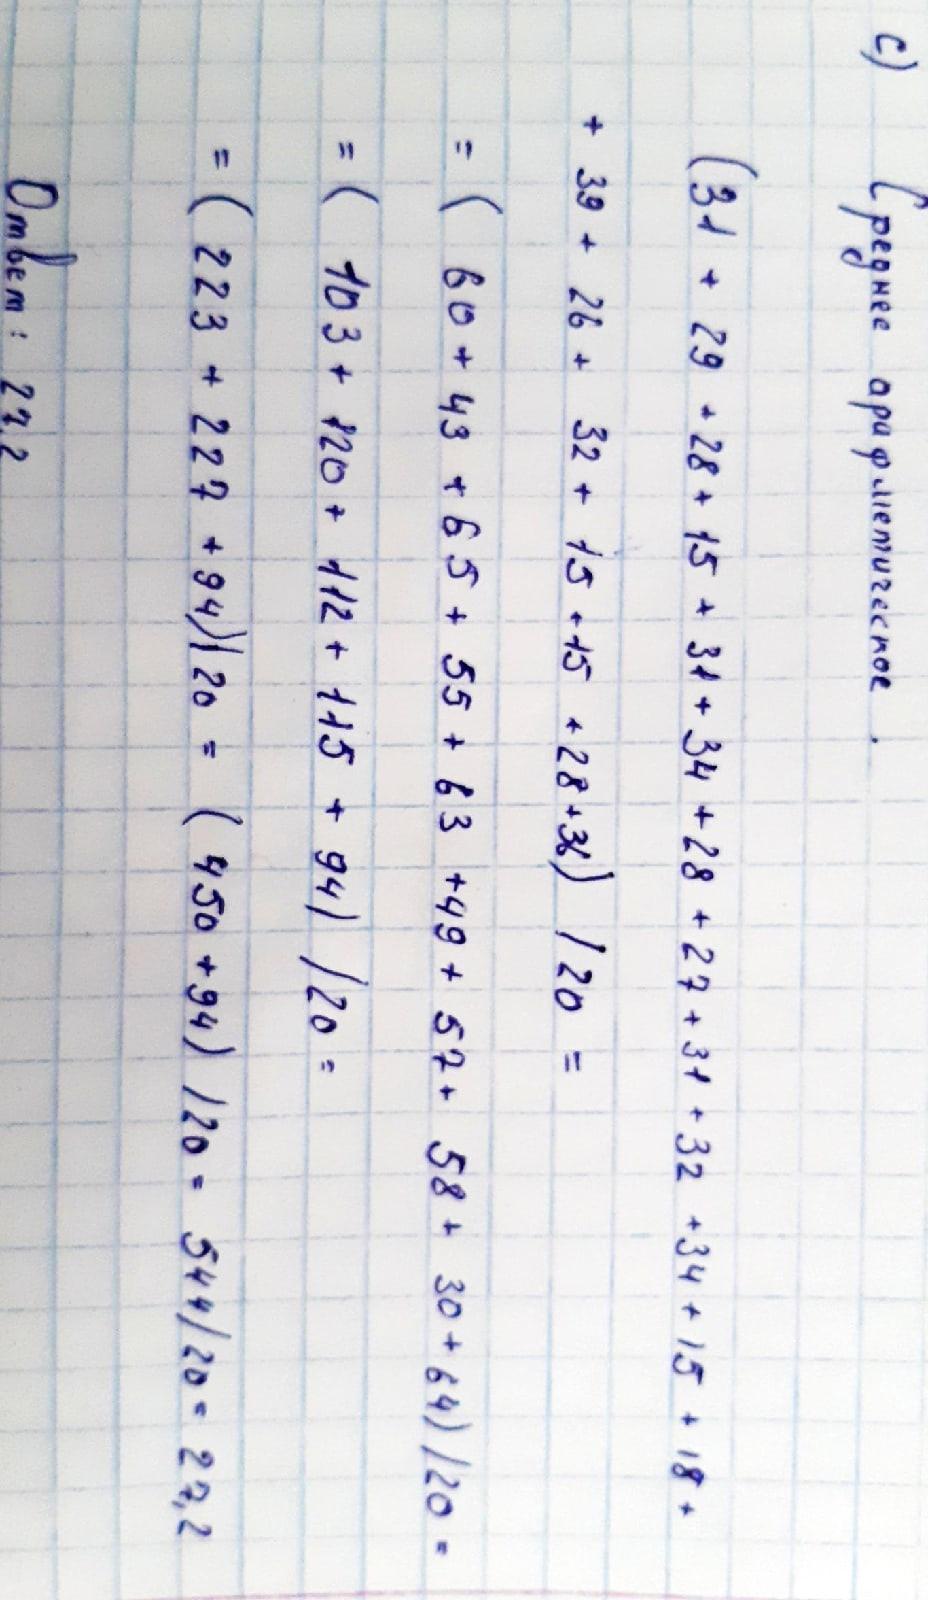 c) Среднее арифметическое.
(31 + 29 + 28 + 15 + 31 + 34 + 28 + 27 + 31 + 32 + 34 + 15 + 18 +
+ 39 + 26 + 32 + 15 + 15 + 28 + 36) / 20 =
= ( 60 + 43 + 65 + 55 + 63 + 49 + 57 + 58 + 30 + 64) / 20 =
= ( 103 + 120 + 112 + 115 + 94) / 20 =
= ( 223 + 227 + 94) / 20 = (450 + 94) / 20 = 544/20 = 27,2
Ответ: 27,2